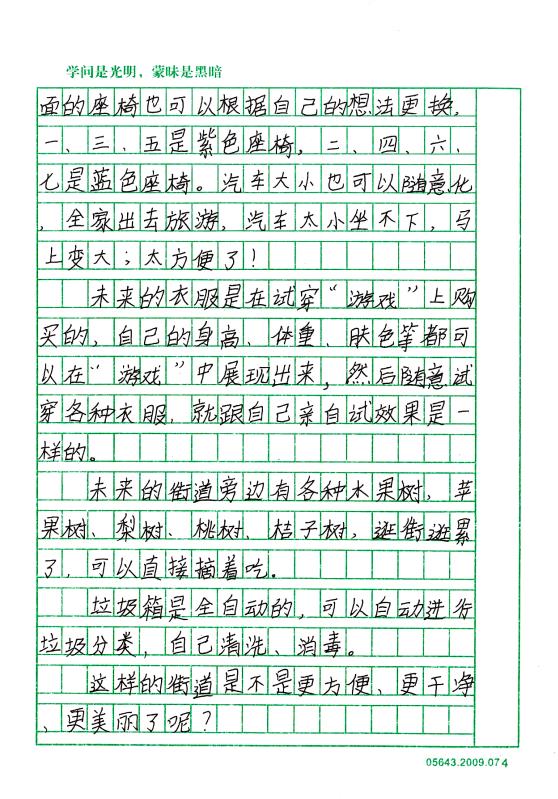 学问是光明，蒙昧是黑暗
面的座椅也可以根据自己的想法更换，
一、三、五是紫色座椅，二、四、六、
七是蓝色座椅。汽车大小也可以随意化
，全家出去旅游，汽车太小坐不下，马
上变大；太方便了！
未来的衣服是在试穿“游戏”上购
买的，自己的身高、体重、肤色等都可
以在“游戏”中展现出来，然后随意试
穿各种衣服，就跟自己亲自试效果是一
样的。
未来的街道旁边有各种水果树，苹
果树、梨树、桃树、桔子树，逛街逛累
了，可以直接摘着吃。
垃圾箱是全自动的，可以自动进行
垃圾分类，自己清洗、消毒。
这样的街道是不是更方便、更干净
、更美丽了呢？
05643.2009.074